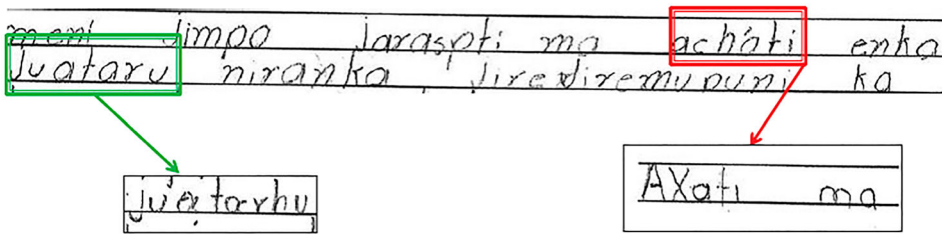 meni jimpo jaraspti ma acháti enka
juataru niranka, jirejiremupuni ka
ju'atarhu
AXati ma